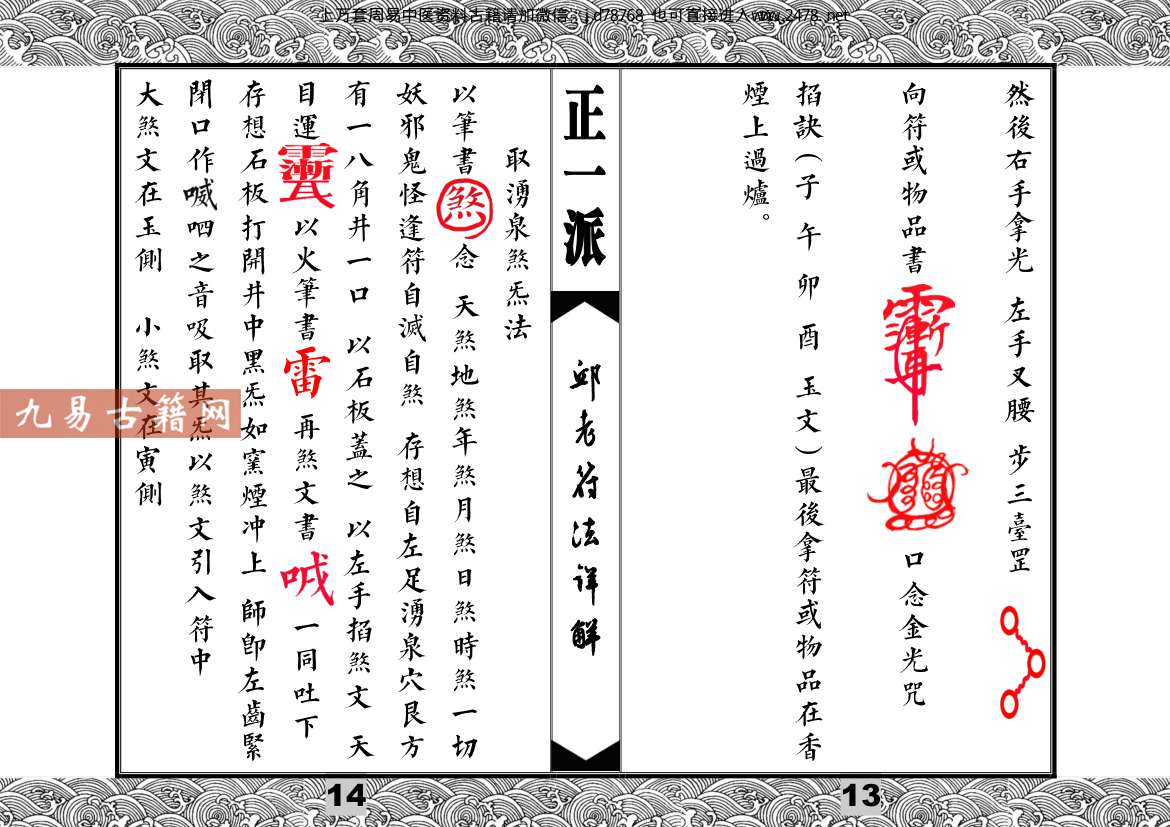 上万套周易中医资料古籍请加微信:jd78768 也可直接进入www.2478.net
然後右手拿光 左手叉腰 步三臺罡
向符或物品書 口念金光咒
掐訣(子 午 卯 酉 玉文)最後拿符或物品在香
煙上過爐。
正一派
邱老符法詳解
取湧泉煞炁法
以筆書煞念 天煞地煞年煞月煞日煞時煞一切
妖邪鬼怪逢符自滅自煞 存想自左足湧泉穴艮方
有一八角井一口 以石板蓋之 以左手掐煞文 天
目運 以火筆書雷再煞文書喊一同吐下
存想石板打開井中黑炁如窯煙冲上 師卽左齒緊
閉口作喊呬之音吸取其炁以煞文引入符中
大煞文在玉側 小煞文在寅側
九易古籍网
14
13